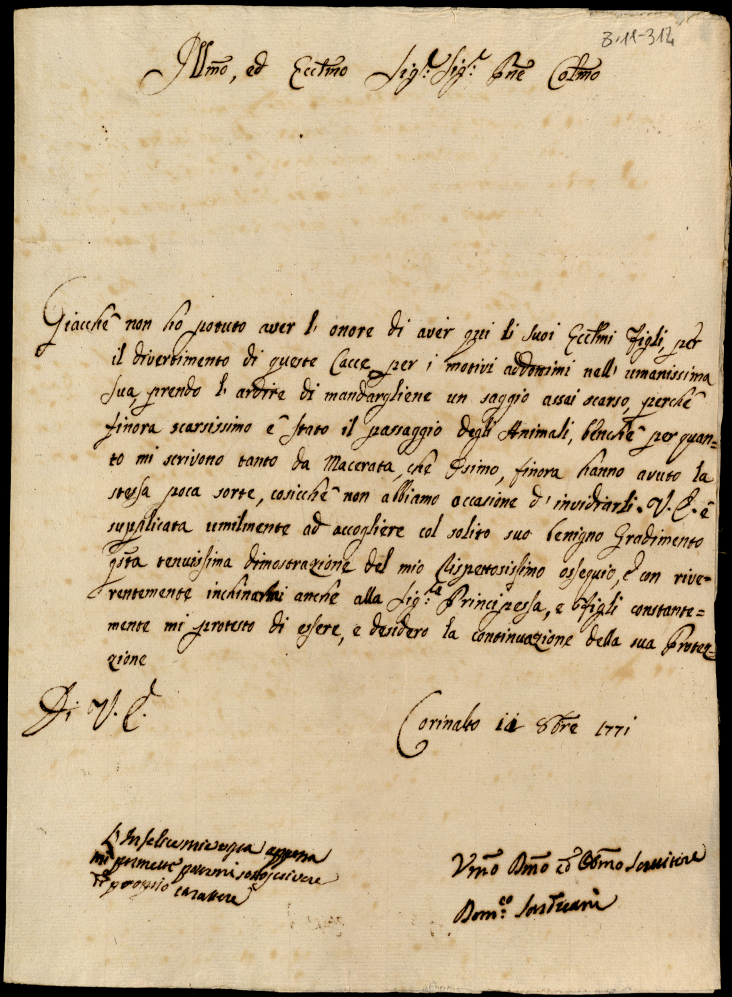 3-11-312
Illmo, ed Ecctmo Sig.r Sig.r Pne Colmo
Giacchè non ho potuto aver l'onore di aver qui li suoi Ecctmi Figli, per
il divertimento di queste Cacce, per i motivi addottimi nell'umanissima
sua, prendo l'ardire di mandargliene un saggio assai scarso, perchè
finora scarsissimo è stato il passaggio degli Animali, benchè per quan=
to mi scrivono tanto da Macerata, che Osimo, finora hanno avuto la
stessa poca sorte, cosicchè non abbiamo occasione d'invidiarli. V. E. è
supplicata umilmente ad accogliere col solito suo benigno Gradimento
qsta tenuissima dimostrazione del mio rispettosissimo ossequio, e con rive=
rentemente inchinarmi anche alla Sig.ra Principessa, e figli constante=
mente mi protesto di essere, e desidero la continuazione della sua Protez=
zione
Di V. E.
Corinalto 11 8bre 1771
L'Infelice mia vista appena
mi permette
proprio carattere
Vmo Dmo ed Obmo Servitore
Dom.co